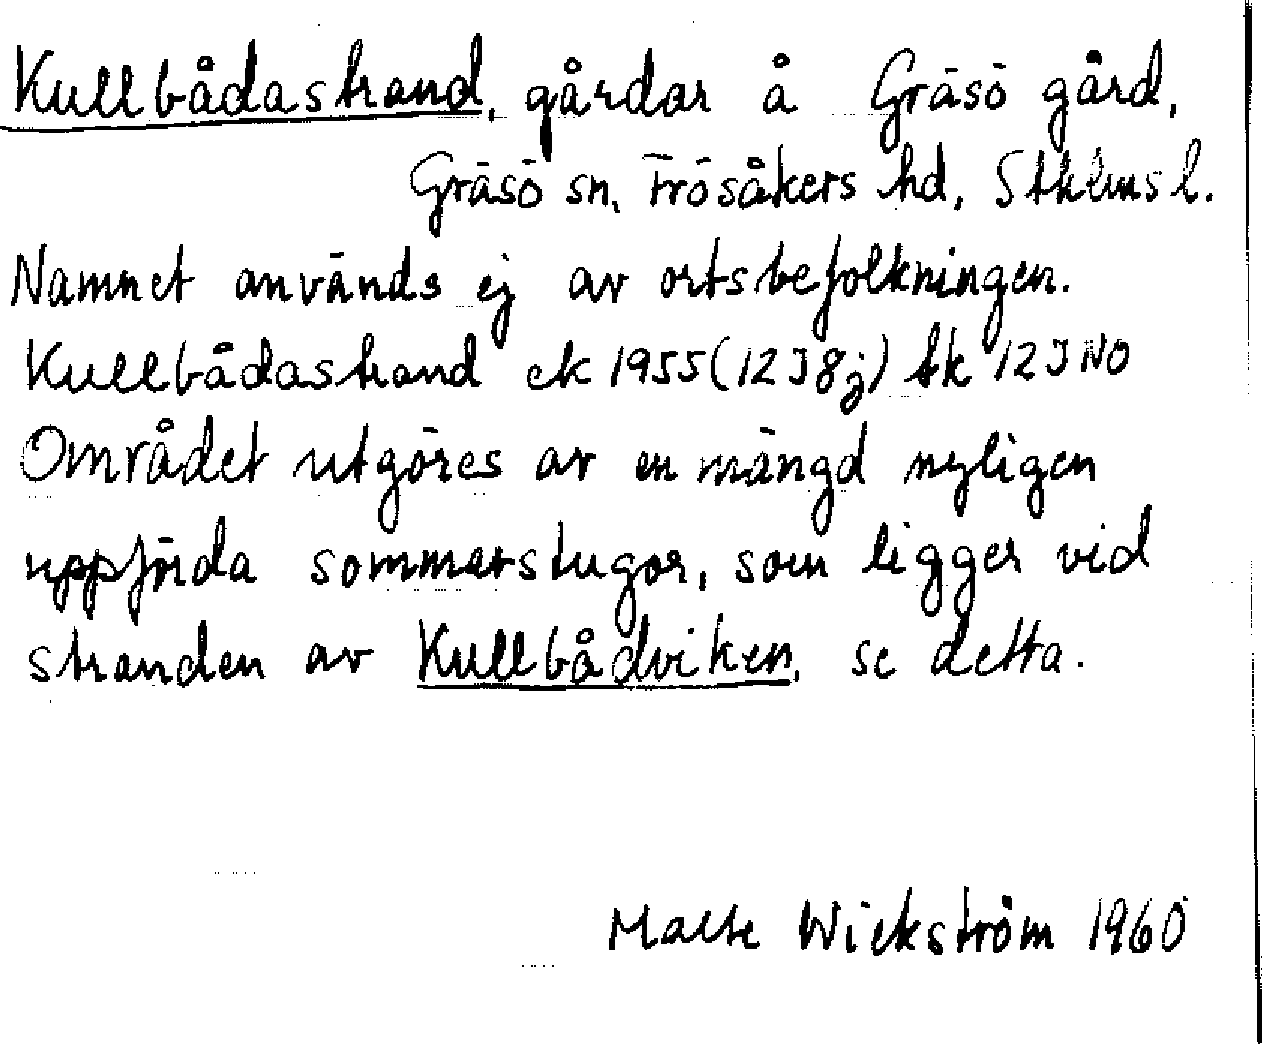 Kullbådastrand, gårdar å Gräsö gård,
Gräsö sn, Frösåkers hd, Sthlms l.
Namnet används ej av ortsbefolkningen.
Kullbådastrand ek 1955 (12 I 8 j) tk 12 I NO
Området utgöres av en mängd nyligen
uppförda sommarstugor, som ligger vid
stranden av Kullbådviken, se detta.
Malte Wickström 1960